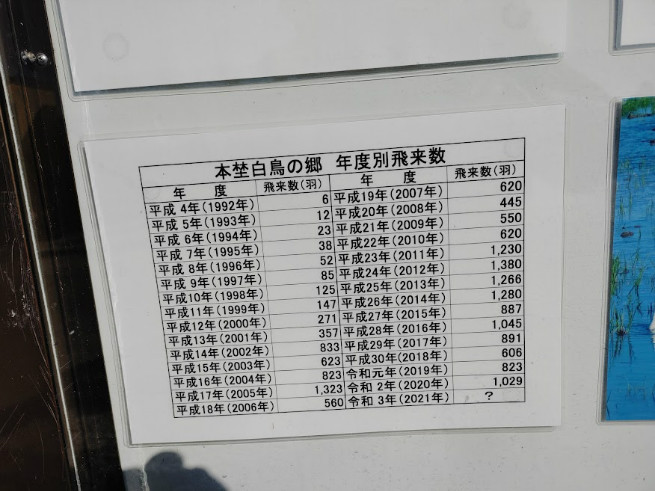 本埜白鳥の郷 年度別飛来数
年 度 飛来数(羽) 年 度 飛来数(羽)
平成 4年(1992年) 6 平成19年(2007年) 620
平成 5年(1993年) 12 平成20年(2008年) 445
平成 6年(1994年) 23 平成21年(2009年) 550
平成 7年(1995年) 38 平成22年(2010年) 620
平成 8年(1996年) 52 平成23年(2011年) 1,230
平成 9年(1997年) 85 平成24年(2012年) 1,380
平成10年(1998年) 125 平成25年(2013年) 1,266
平成11年(1999年) 147 平成26年(2014年) 1,280
平成12年(2000年) 271 平成27年(2015年) 887
平成13年(2001年) 357 平成28年(2016年) 1,045
平成14年(2002年) 833 平成29年(2017年) 891
平成15年(2003年) 623 平成30年(2018年) 606
平成16年(2004年) 823 令和元年(2019年) 823
平成17年(2005年) 1,323 令和 2年(2020年) 1,029
平成18年(2006年) 560 令和 3年(2021年) ?